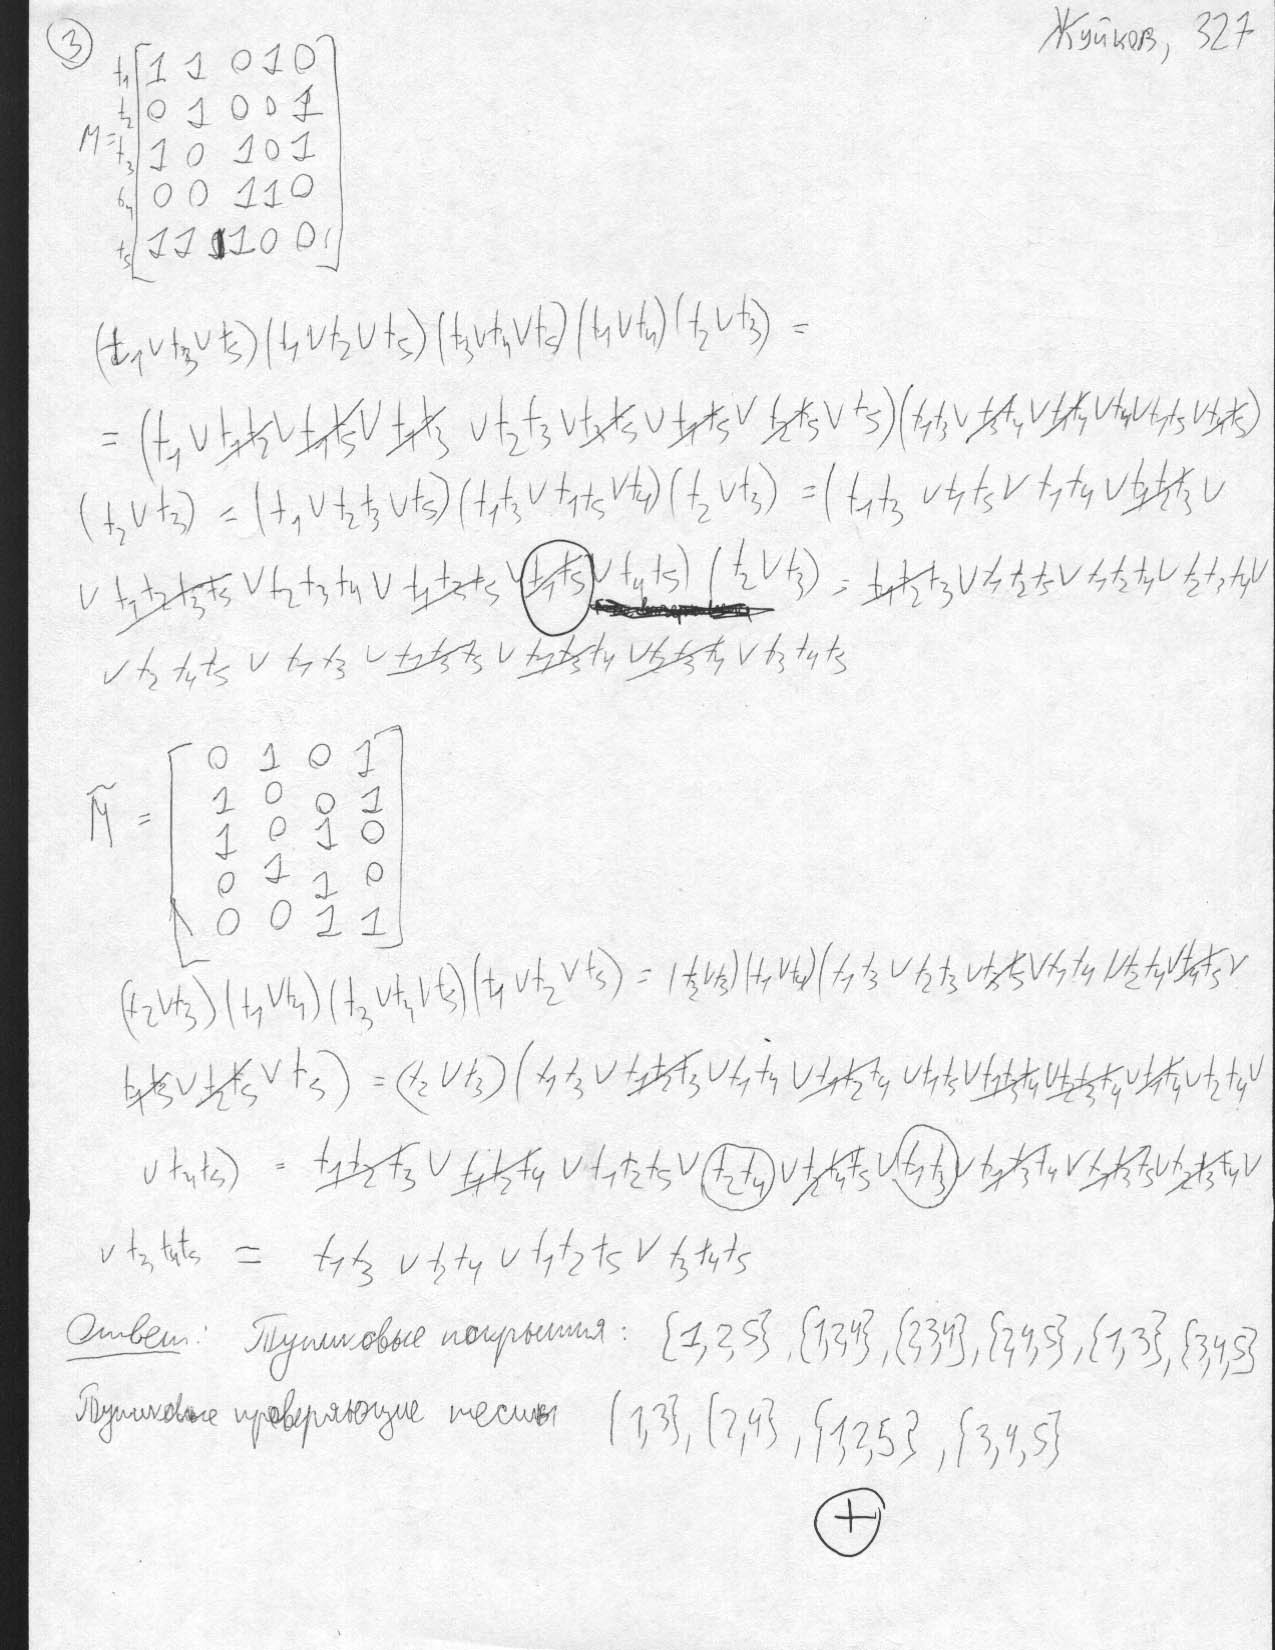 3
Жуйков, 327
M =
t₁ 1 1 0 1 0
t₂ 0 1 0 0 1
t₃ 1 0 1 0 1
t₄ 0 0 1 1 0
t₅ 1 1 1 0 0
(t₁∨t₃∨t₅)(t₁∨t₂∨t₅)(t₃∨t₄∨t₅)(t₁∨t₄)(t₂∨t₃) =
= (t₁∨t₁t₂∨t₁t₅∨t₁t₃∨t₂t₃∨t₃t₅∨t₁t₅∨t₂t₅∨t₅)(t₁t₃∨t₃t₄∨t₁t₄∨t₄∨t₁t₅∨t₄t₅)
(t₂∨t₃) = (t₁∨t₂t₃∨t₅)(t₁t₃∨t₁t₅∨t₄)(t₂∨t₃) = (t₁t₃∨t₁t₅∨t₁t₄∨t₁t₂t₃∨
∨t₁t₂t₃t₅∨t₂t₃t₄∨t₁t₃t₅∨t₁t₅∨t₄t₅)(t₂∨t₃) = t₁t₂t₃∨t₁t₂t₅∨t₁t₂t₄∨t₂t₃t₄∨
∨t₂t₄t₅∨t₁t₃∨t₁t₃t₅∨t₁t₃t₄∨t₂t₃t₄∨t₃t₄t₅
M̃ =
0 1 0 1
1 0 0 1
1 0 1 0
0 1 1 0
0 0 1 1
(t₂∨t₃)(t₁∨t₄)(t₃∨t₄∨t₅)(t₁∨t₂∨t₅) = (t₂∨t₃)(t₁∨t₄)(t₁t₃∨t₂t₃∨t₃t₅∨t₁t₄∨t₂t₄∨t₄t₅∨
t₁t₅∨t₂t₅∨t₅) = (t₂∨t₃)(t₁t₃∨t₁t₂t₃∨t₁t₄∨t₁t₂t₄∨t₁t₅∨t₁t₃t₄∨t₂t₃t₄∨t₁t₄∨t₂t₄∨
∨t₄t₅) = t₁t₂t₃∨t₁t₂t₄∨t₁t₂t₅∨t₂t₄∨t₂t₄t₅∨t₁t₃∨t₁t₃t₄∨t₁t₃t₅∨t₂t₃t₄∨
∨t₃t₄t₅ = t₁t₃∨t₂t₄∨t₁t₂t₅∨t₃t₄t₅
Ответ: Тупиковые покрытия: {1,2,5}, {1,2,4}, {2,3,4}, {2,4,5}, {1,3}, {3,4,5}
Тупиковые проверяющие тесты {1,3}, {2,4}, {1,2,5}, {3,4,5}
+